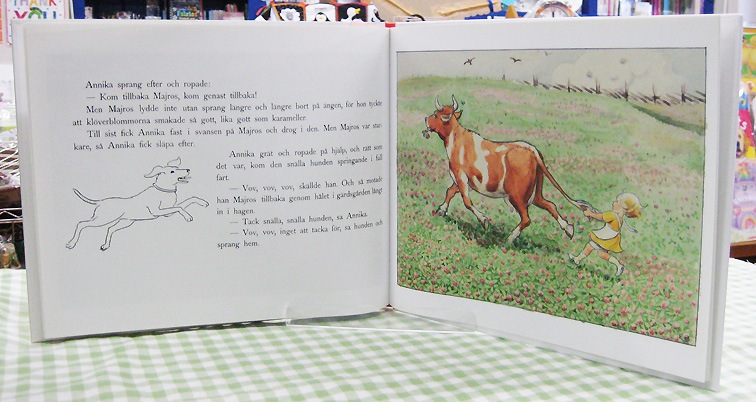 THANK
YOU!
Annika sprang efter och ropade:
— Kom tillbaka Majros, kom genast tillbaka!
Men Majros lydde inte utan sprang längre och längre bort på ängen, för hon tyckte
att klöverblommorna smakade så gott, lika gott som karameller.
Till sist fick Annika fast i svansen på Majros och drog i den. Men Majros var star-
kare, så Annika fick släpa efter.
Annika grät och ropade på hjälp, och rätt som
det var, kom den snälla hunden springande i full
fart.
— Vov, vov, vov, skällde han. Och så motade
han Majros tillbaka genom hålet i gärdsgården långt
in i hagen.
— Tack snälla, snälla hunden, sa Annika.
— Vov, vov, inget att tacka för, sa hunden och
sprang hem.